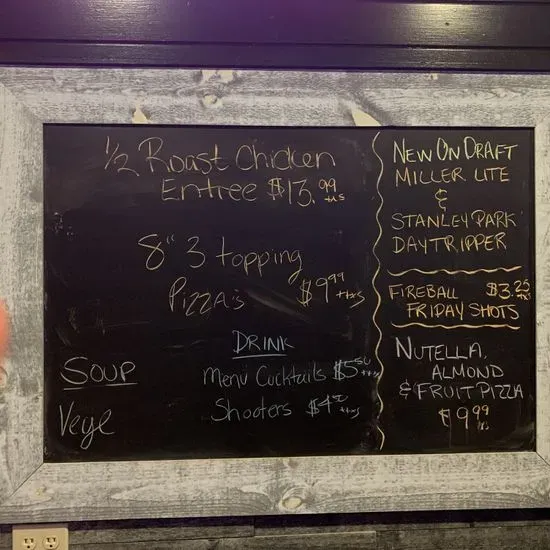 1/2 Roast Chicken
Entree $13.99
8" 3 topping
Pizza's $9.99
DRINK
Menu Cucktails $5.50
Shooters
SOUP
Vege
NEW ON DRAFT
MILLER LITE
&
STANLEY PARK
DAYTRIPPER
FIREBALL $3.25
FRIDAY SHOTS
NUTELLA,
ALMOND
& FRUIT PIZZA
$9.99